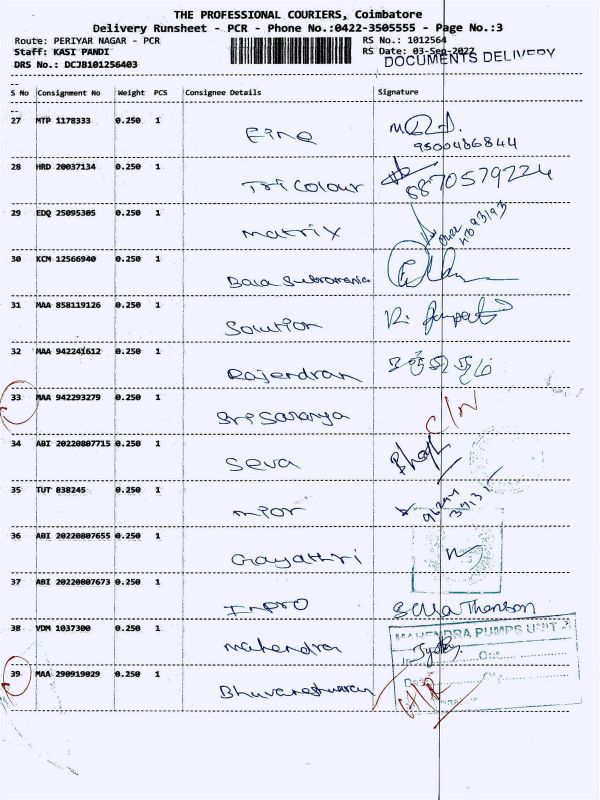 THE PROFESSIONAL COURIERS, Coimbatore
Delivery Runsheet - PCR - Phone No.:0422-3505555 - Page No.:3
Route: PERIYAR NAGAR - PCR RS No.: 1012564
Staff: KASI PANDI RS Date: 03-Sep-2022
DRS No.: DCJB101256403 DOCUMENTS DELIVERY
S No Consignment No Weight PCS Consignee Details Signature
27 MTP 1178333 0.250 1 Fine
9500486844
28 HRD 20037134 0.250 1 Tricolour 8870579224
29 EDQ 25095305 0.250 1 Matrix
30 KCM 12566940 0.250 1 Bala Subromania
31 MAA 858119126 0.250 1 Solution
32 MAA 942241612 0.250 1 Rajendran
33 MAA 942293279 0.250 1 Sri Saranya
34 ABI 20220807715 0.250 1 Seva
35 TUT 838245 0.250 1 mior
36 ABI 20220807655 0.250 1 Gayathri
37 ABI 20220807673 0.250 1 Inpro
38 VDM 1037300 0.250 1 Mahendra MAHENDRA PUMPS UNIT
39 MAA 290919029 0.250 1 Bhuvaneshwaran